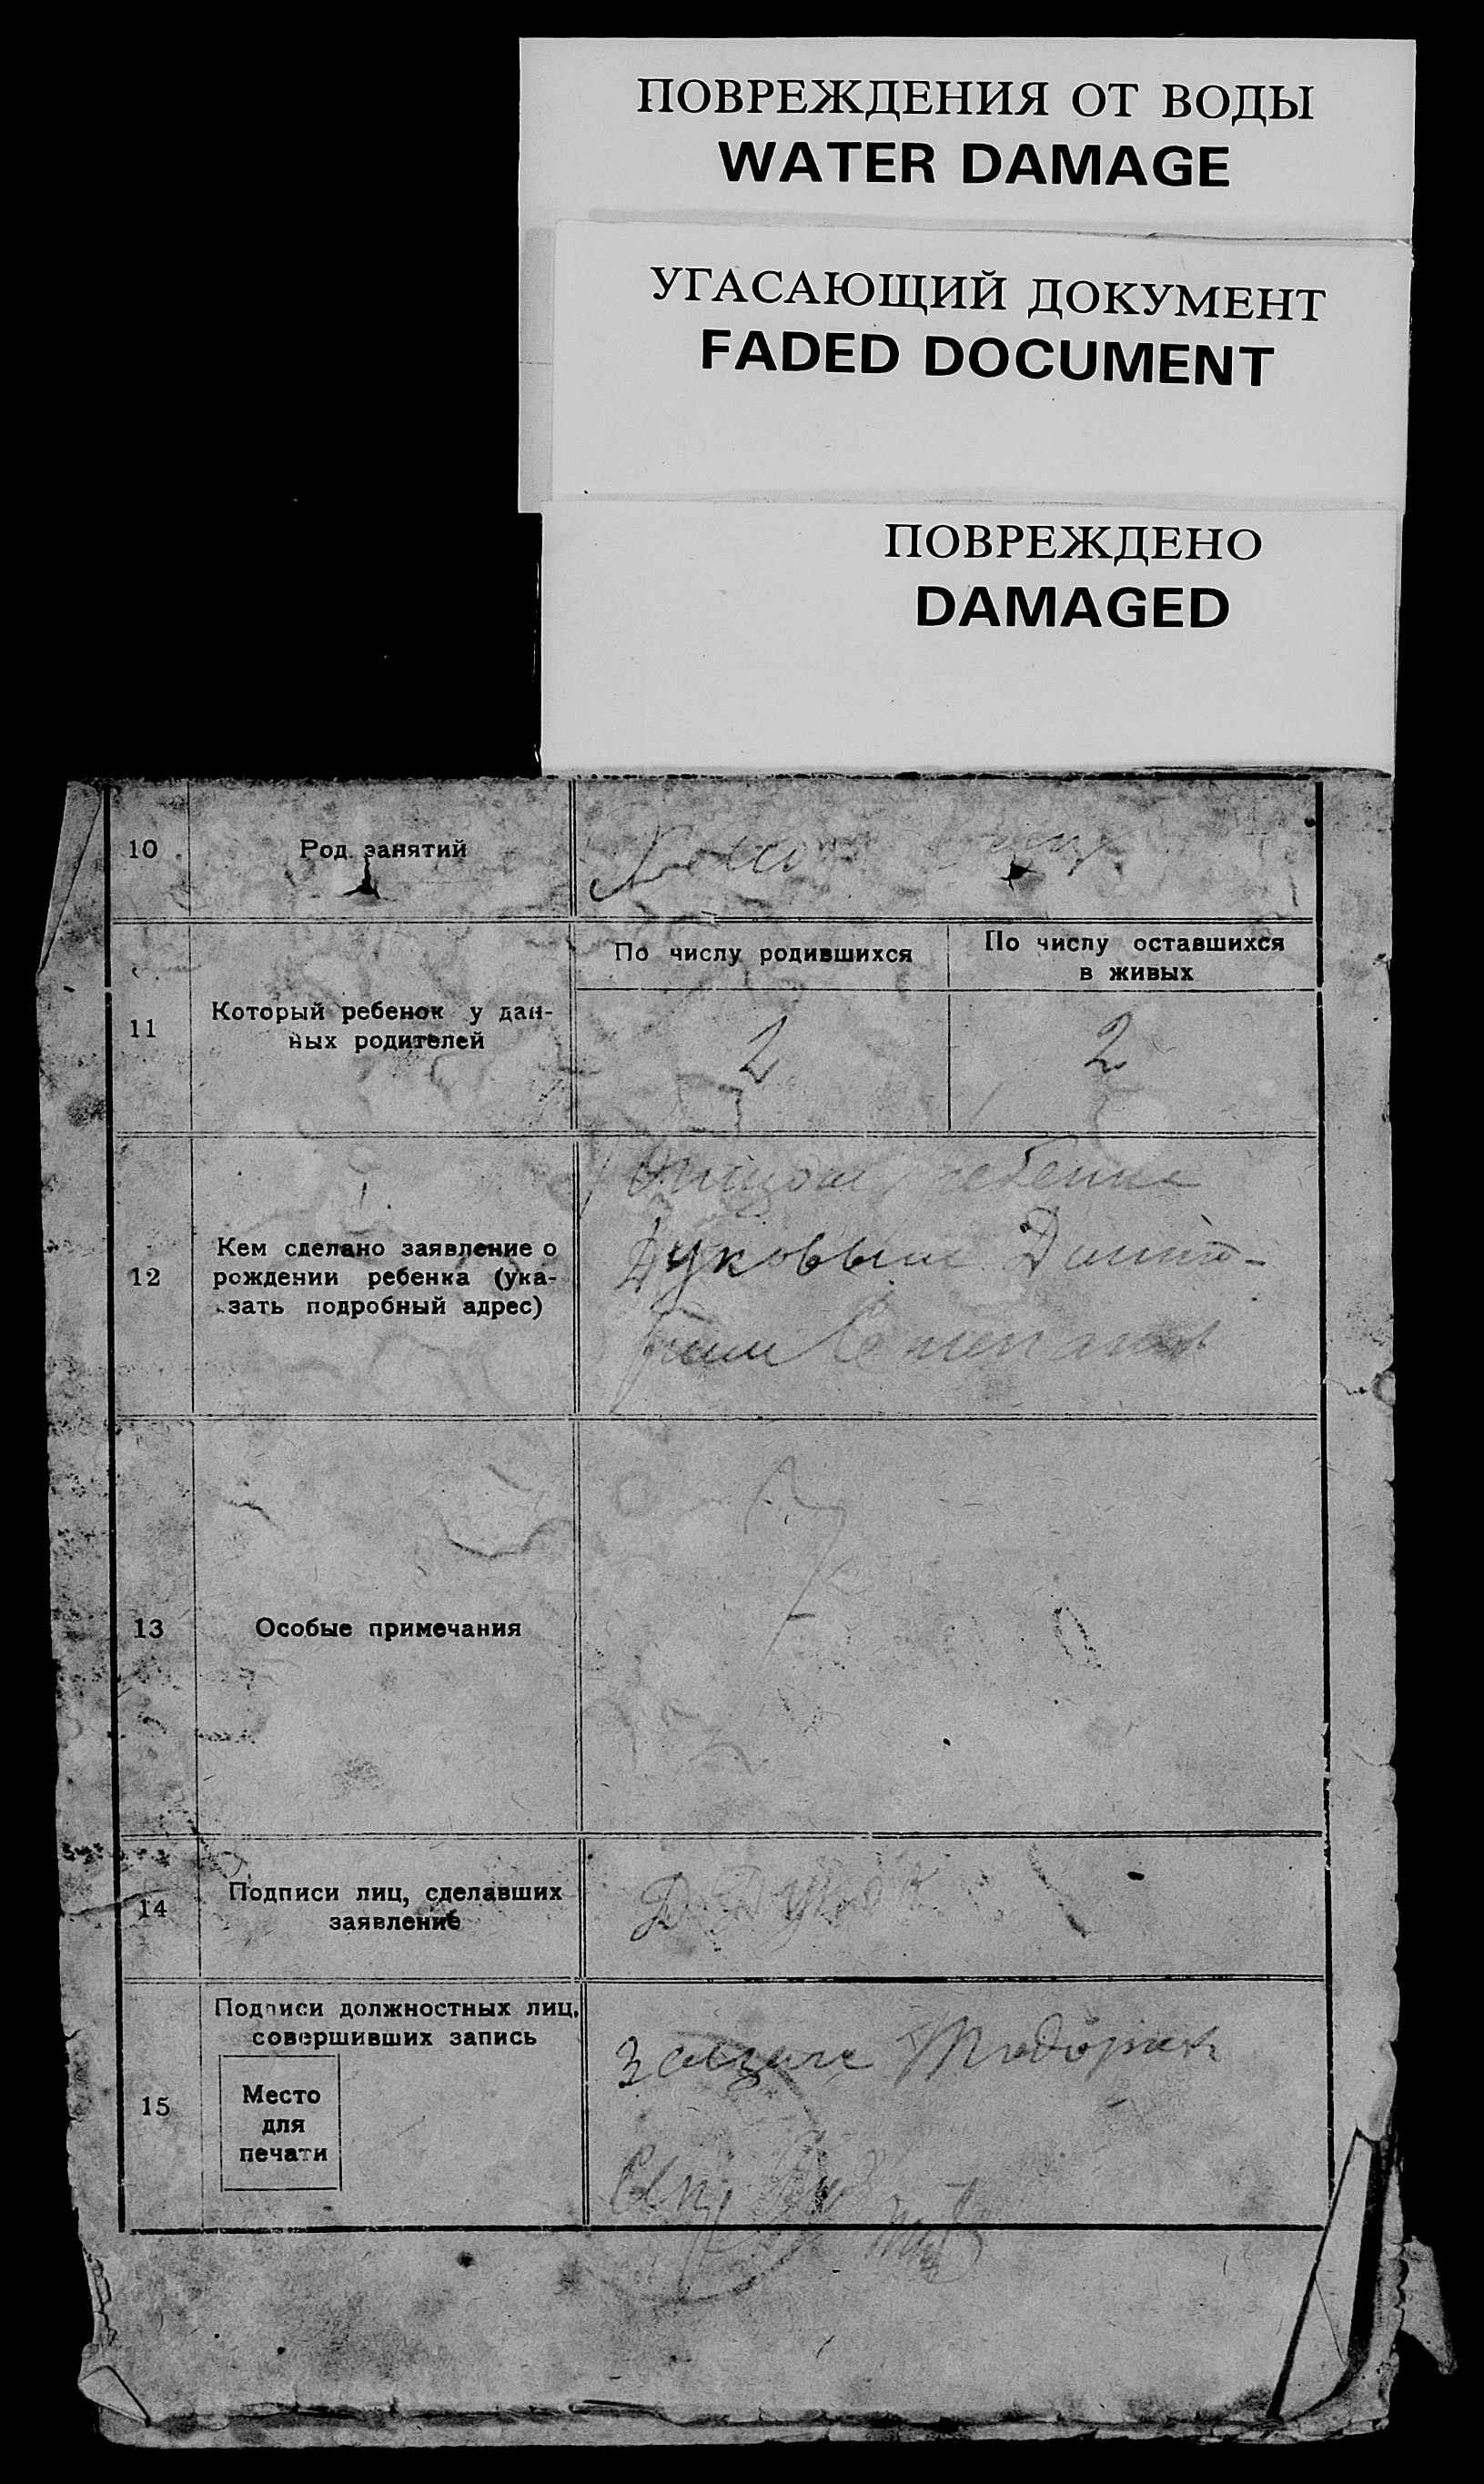 ПОВРЕЖДЕНИЯ ОТ ВОДЫ
WATER DAMAGE
УГАСАЮЩИЙ ДОКУМЕНТ
FADED DOCUMENT
ПОВРЕЖДЕНО
DAMAGED
10
Род занятий
11
Который ребенок у дан-
ных родителей
По числу родившихся
По числу оставшихся
в живых
2
2
12
Кем сделано заявление о
рождении ребенка (ука-
зать подробный адрес)
ребенка
Дуковым Дмит-
13
Особые примечания
14
Подписи лиц, сделавших
заявление
Д Дуков
15
Подписи должностных лиц,
совершивших запись
Место
для
печати